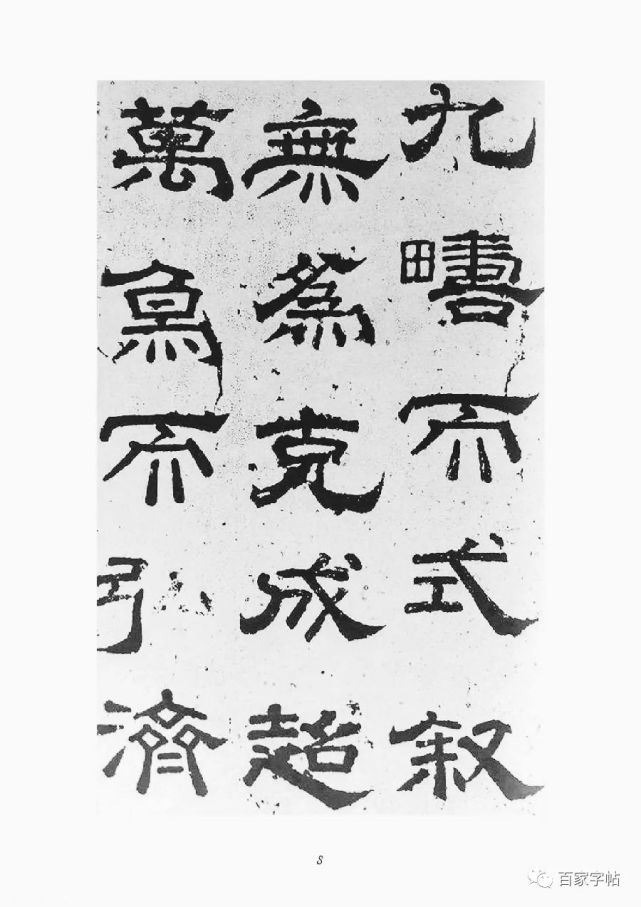 九疇而式叙
無爲克成超
萬象而弘濟
8
百家字帖